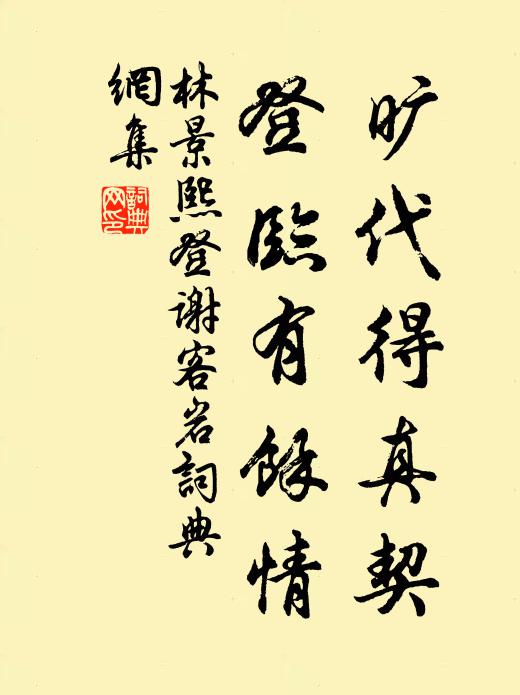 旷代得真契
登臨有餘情
林景熙登谢客岩詞典
網集
詞典
网印